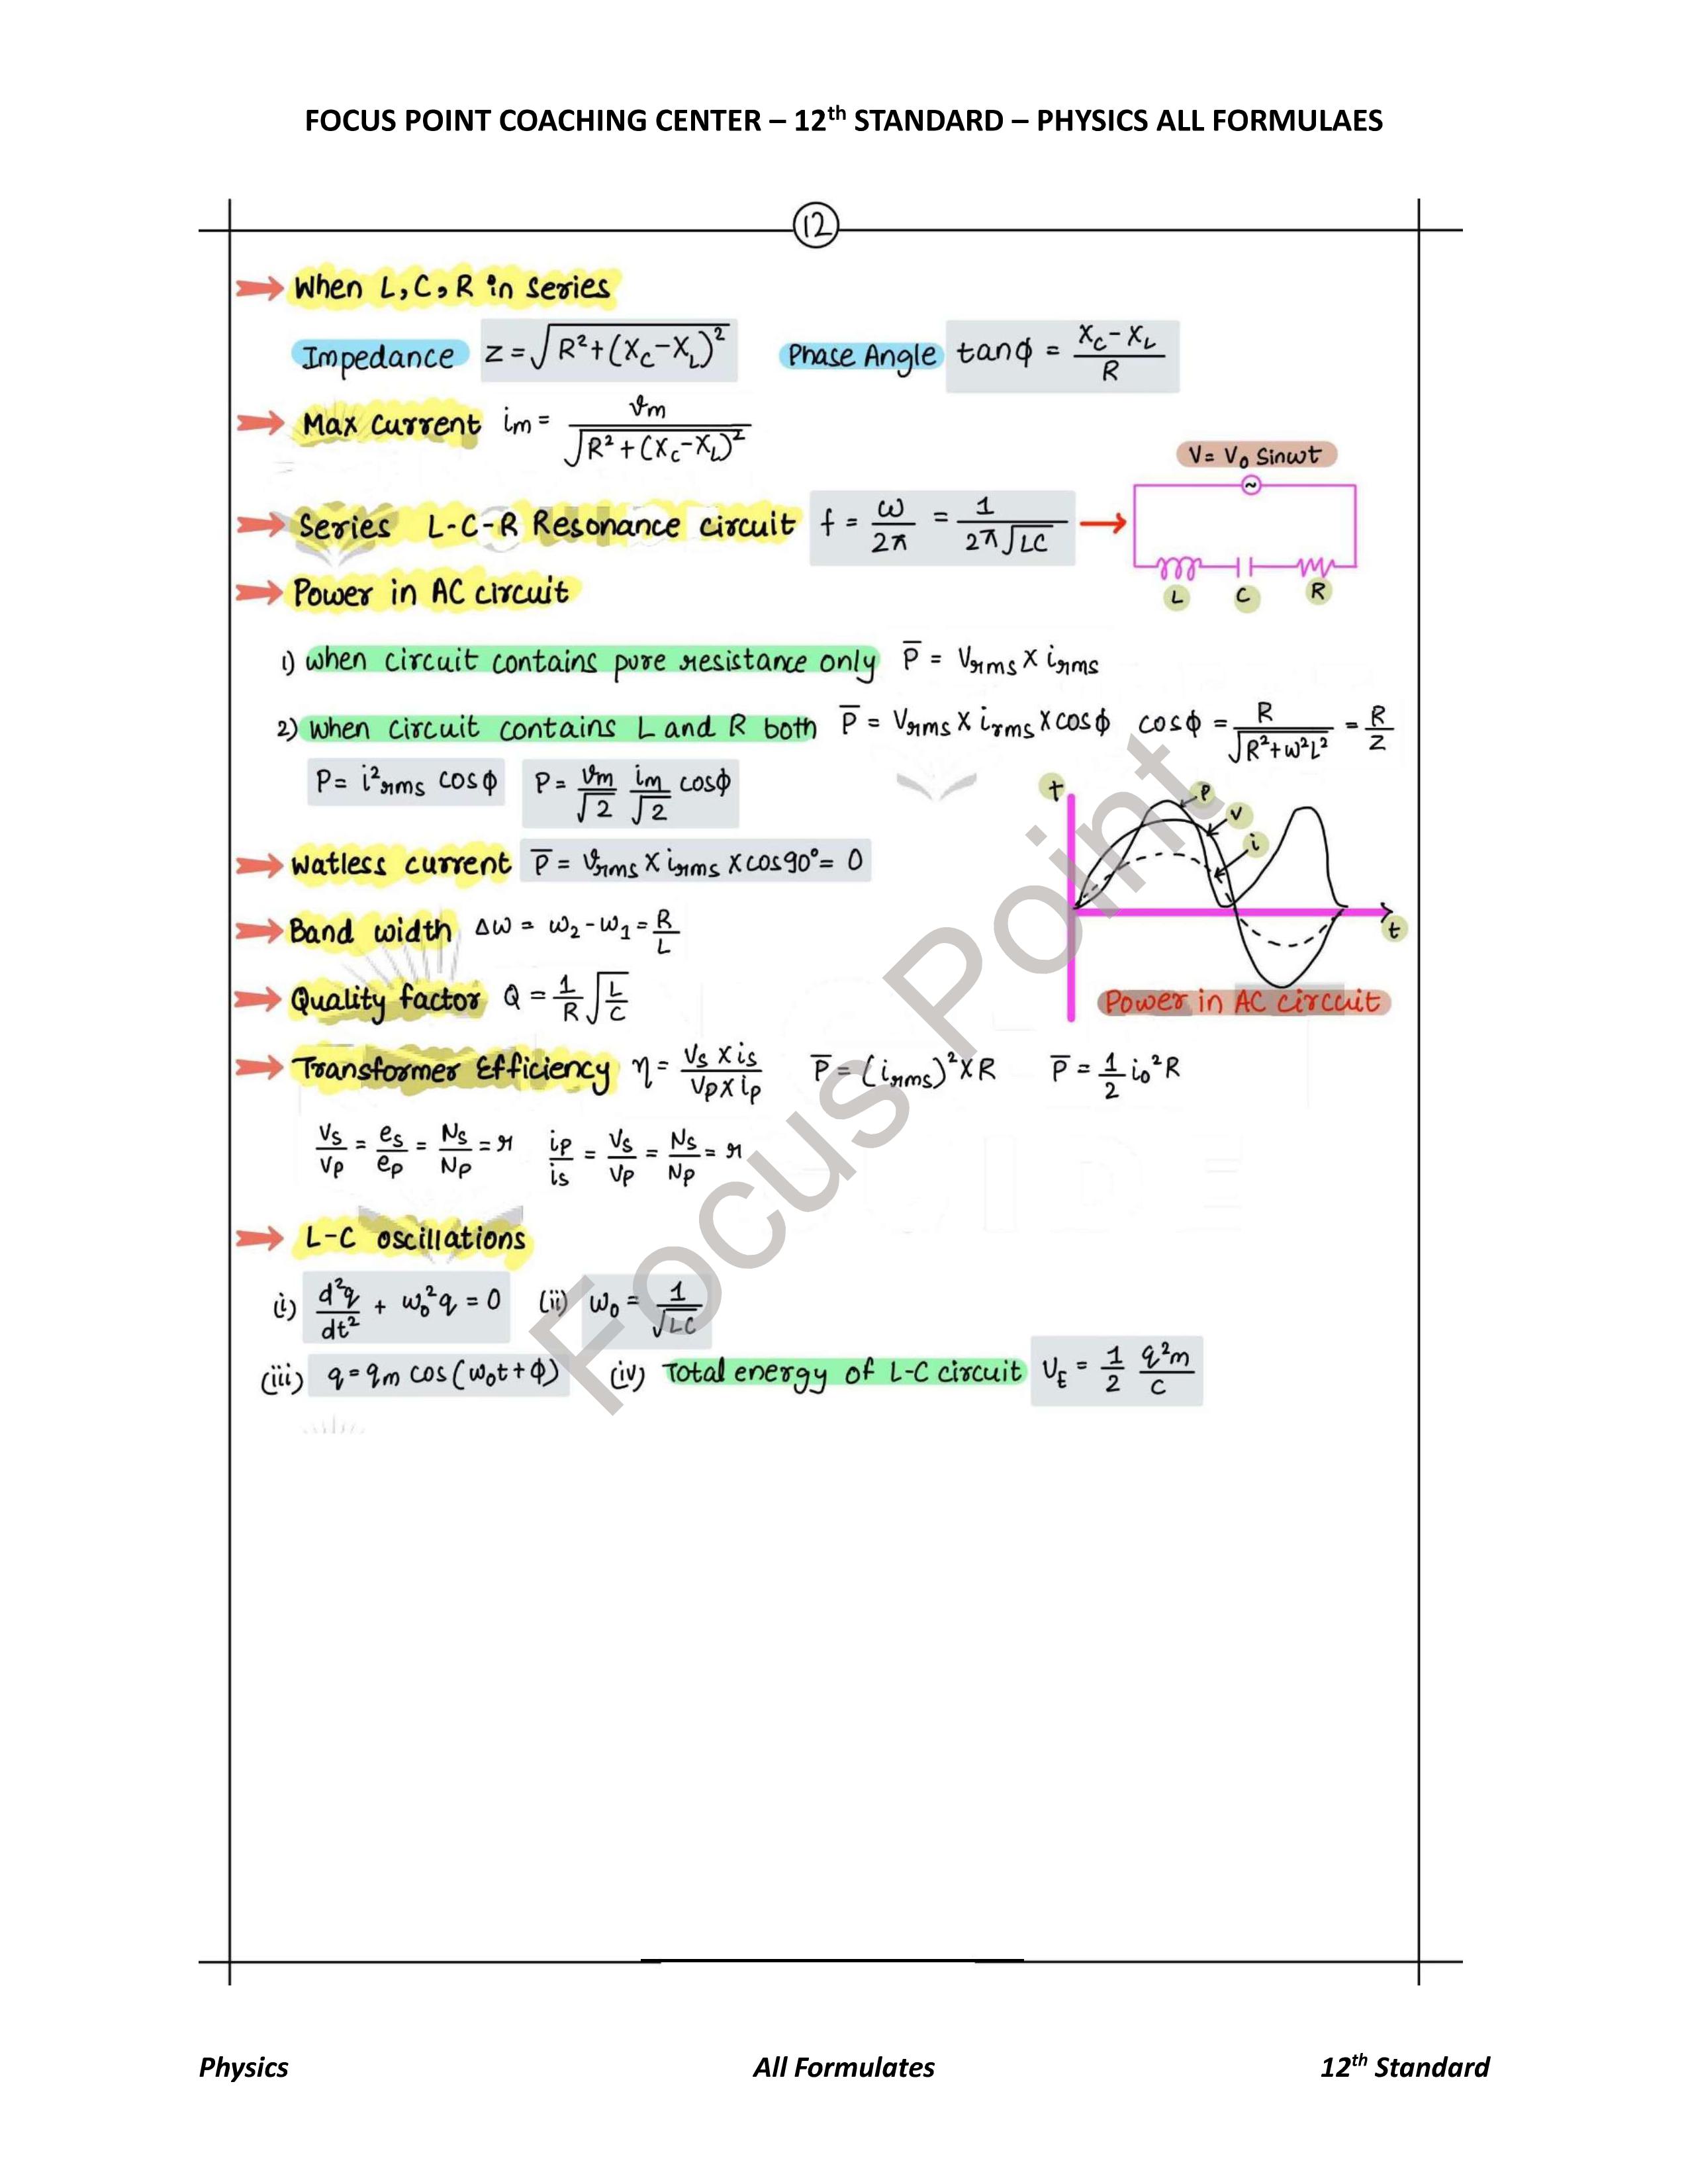 FOCUS POINT COACHING CENTER – 12th STANDARD – PHYSICS ALL FORMULAES
12
When L, C, R in series
Impedance Z = √(R² + (X_C − X_L)²) Phase Angle tanϕ = (X_C − X_L)/R
Max Current i_m = v_m/√(R² + (X_C − X_L)²)
V = V₀ Sinωt
Series L-C-R Resonance circuit f = ω/2π = 1/(2π√LC)
L C R
Power in AC circuit
1) when circuit contains pure resistance only P̅ = V_rms × i_rms
2) when circuit contains L and R both P̅ = V_rms × i_rms × cosϕ cosϕ = R/√(R² + ω²L²) = R/Z
P = i²_rms cosϕ P = v_m/√2 i_m/√2 cosϕ
t P V i t
Watless current P̅ = v_rms × i_rms × cos90° = 0
Band width Δω = ω₂ − ω₁ = R/L
Quality factor Q = 1/R √(L/C)
Power in AC circuit
Transformer Efficiency η = (V_s × i_s)/(V_p × i_p) P̅ = (i_rms)² × R P̅ = 1/2 i₀² R
V_s/V_p = e_s/e_p = N_s/N_p = r i_p/i_s = V_s/V_p = N_s/N_p = r
L-C oscillations
(i) d²q/dt² + ω₀²q = 0 (ii) ω₀ = 1/√LC
(iii) q = q_m cos(ω₀t + ϕ) (iv) Total energy of L-C circuit U_E = 1/2 q²m/C
Focus Point
Physics All Formulates 12th Standard